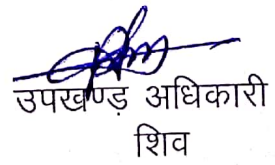 उपखण्ड़ अधिकारी
शिव